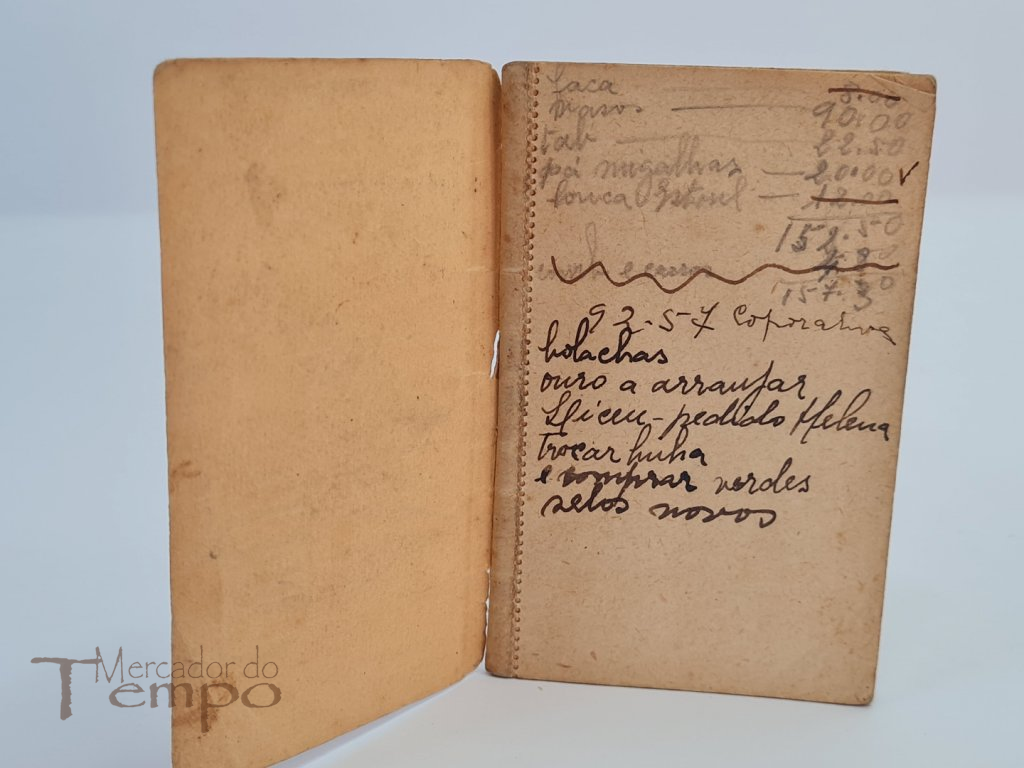 faca 5.00
vasos 90.00
tav 22.50
pá migalhas 20.00 ✓
louca Estoril 18.00
152.50
4.80
e 157.30
92.57 Coporativa
bolachas
ouro a arranjar
Liceu - pedido Helena
trocar linha
e comprar verdes
selos novos
Mercador do
Tempo